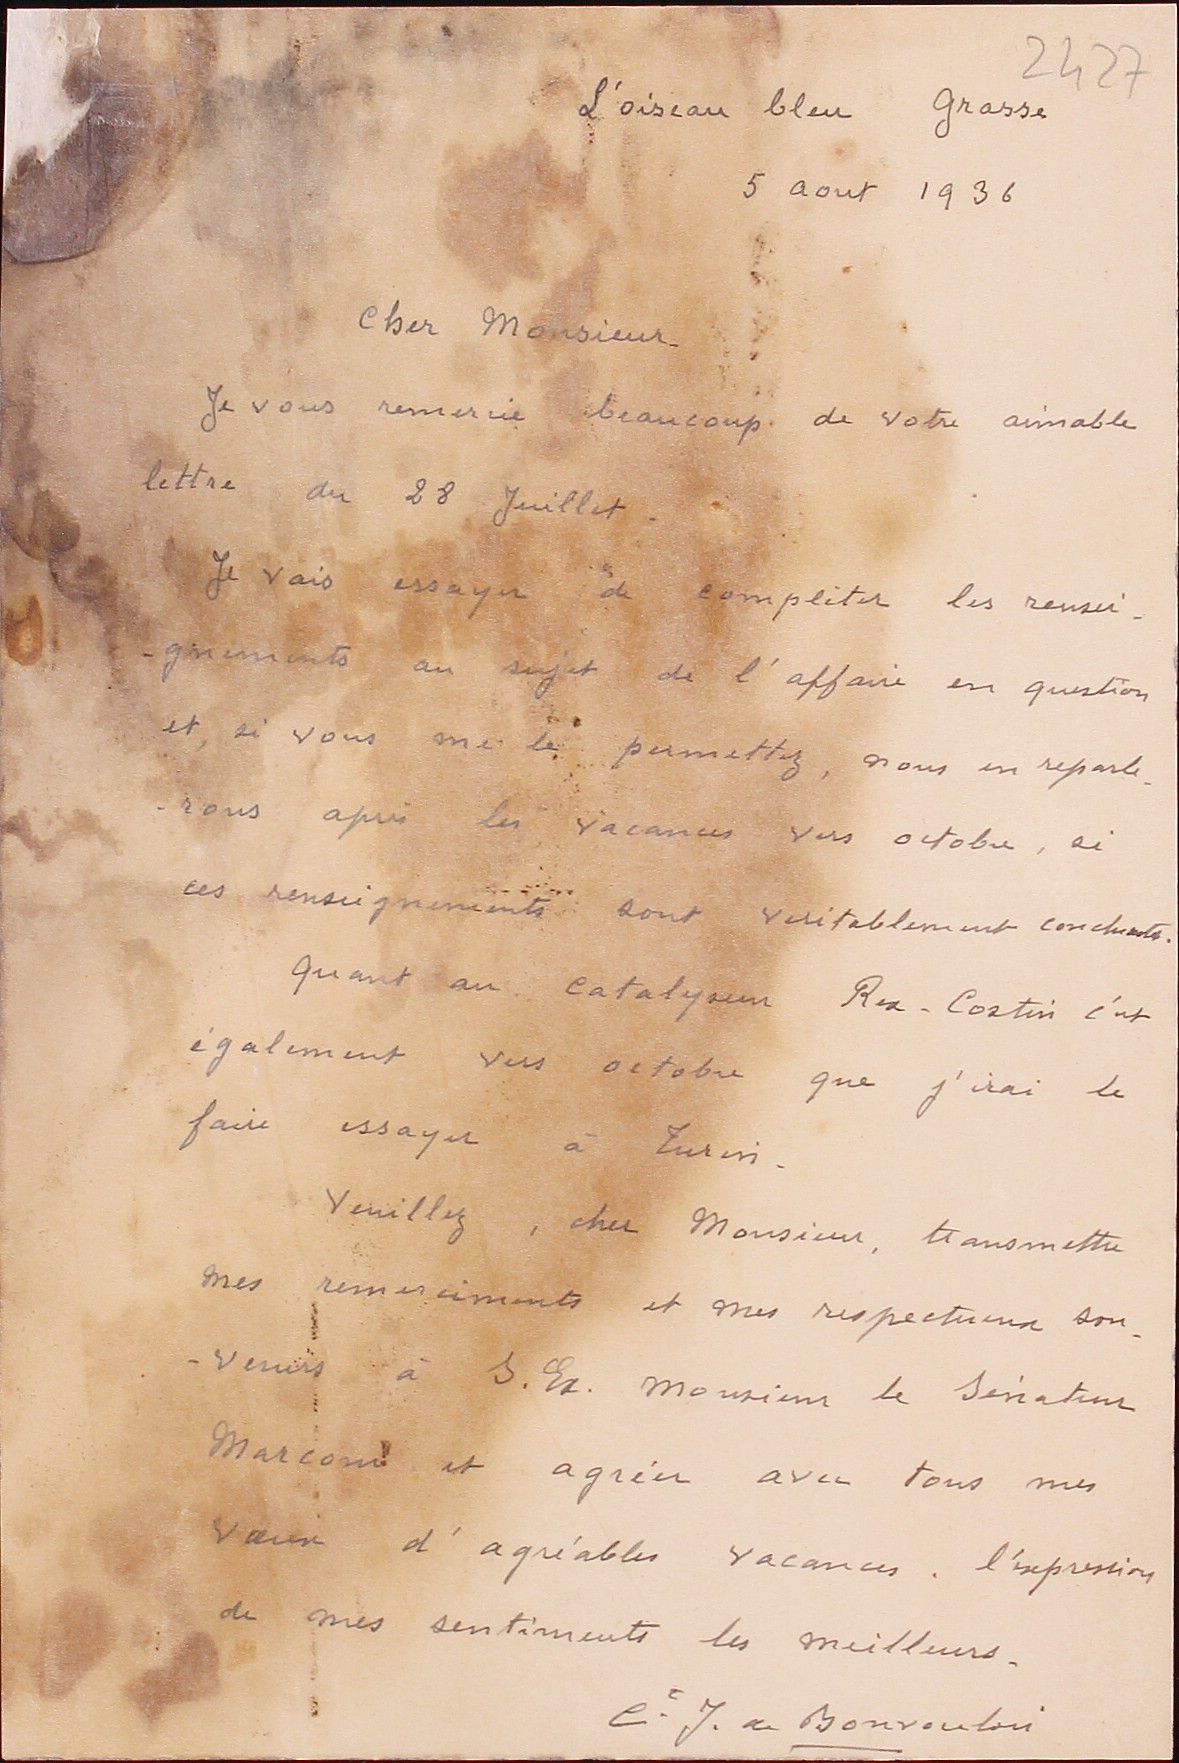 2427
L'oiseau bleu Grasse
5 aout 1936
Cher Monsieur -
Je vous remercie beaucoup de votre aimable
lettre du 28 Juillet -
Je vais essayer de compléter les rensei-
-gnements au sujet de l'affaire en question
et, si vous me le permettez, nous en reparle-
-rons après les vacances vers octobre, si
ces renseignements sont veritablement concluants.
Quant au catalyseur Rex-Costin c'est
également vers octobre que j'irai le
faire essayer à Turin -
Veuillez, cher Monsieur, transmettre
mes remerciments et mes respectueux sou-
-venirs à S. Ex. Monsieur le Sénateur
Marconi et agréer avec tous mes
vœux d'agréables vacances. l'expression
de mes sentiments les meilleurs -
Cte J. de Bonvouloir